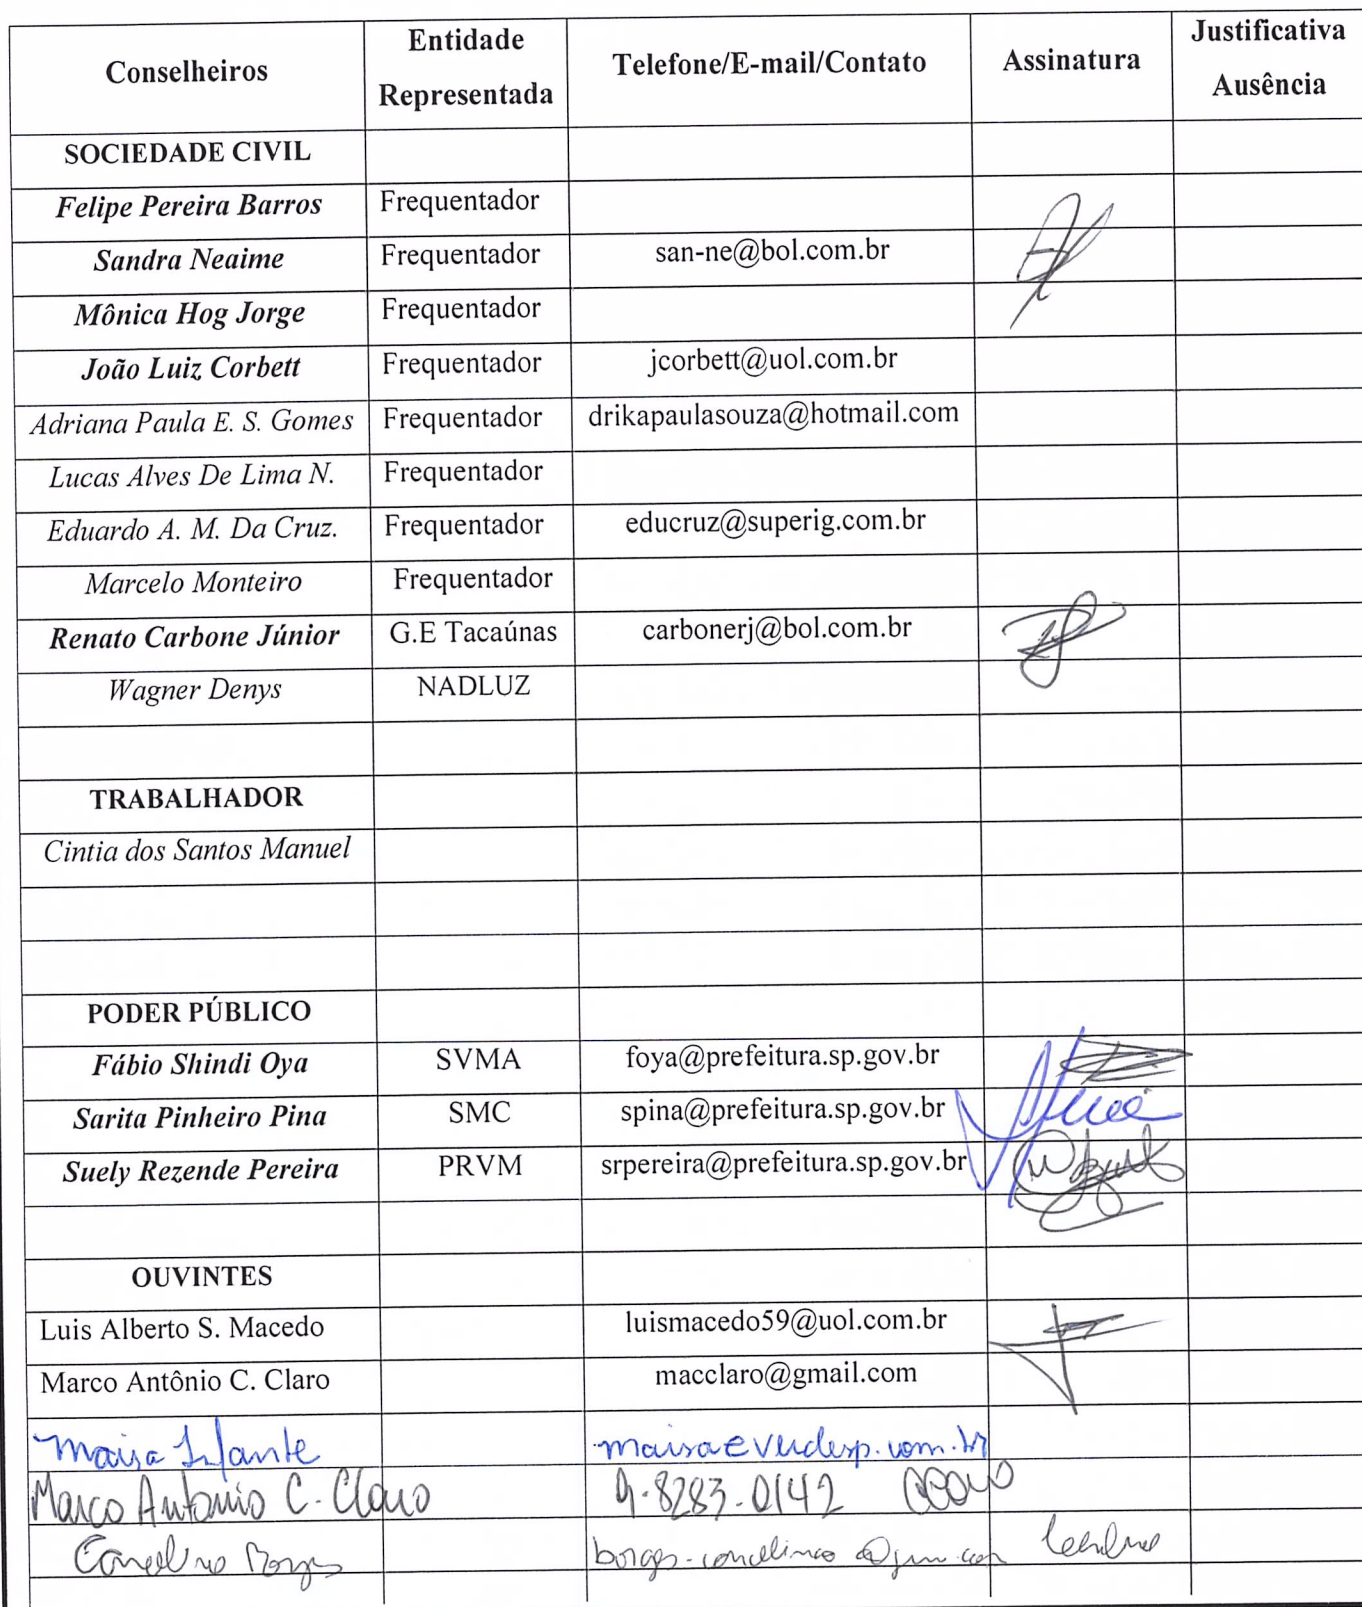 Conselheiros Entidade Representada Telefone/E-mail/Contato Assinatura Justificativa Ausência
SOCIEDADE CIVIL
Felipe Pereira Barros Frequentador
Sandra Neaime Frequentador san-ne@bol.com.br
Mônica Hog Jorge Frequentador
João Luiz Corbett Frequentador jcorbett@uol.com.br
Adriana Paula E. S. Gomes Frequentador drikapaulasouza@hotmail.com
Lucas Alves De Lima N. Frequentador
Eduardo A. M. Da Cruz. Frequentador educruz@superig.com.br
Marcelo Monteiro Frequentador
Renato Carbone Júnior G.E Tacaúnas carbonerj@bol.com.br
Wagner Denys NADLUZ
TRABALHADOR
Cintia dos Santos Manuel
PODER PÚBLICO
Fábio Shindi Oya SVMA foya@prefeitura.sp.gov.br
Sarita Pinheiro Pina SMC spina@prefeitura.sp.gov.br
Suely Rezende Pereira PRVM srpereira@prefeitura.sp.gov.br
OUVINTES
Luis Alberto S. Macedo luismacedo59@uol.com.br
Marco Antônio C. Claro macclaro@gmail.com
Maisa Infante
Marco Antonio C. Claro 9-8283-0142 Claro
Borges